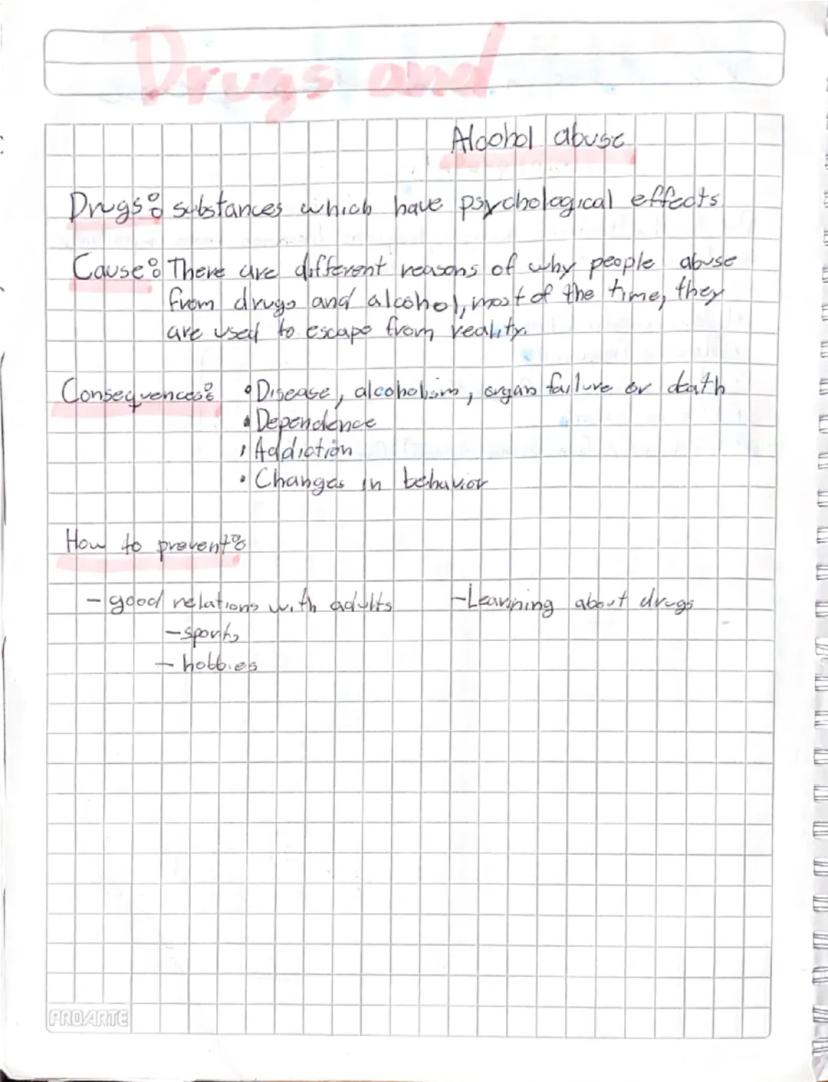 Drugs and
Alcohol abuse
Drugs: substances which have psychological effects
Cause: There are different reasons of why people abuse
from drugs and alcohol, most of the time, they
are used to escape from reality.
Consequences: • Disease, alcoholism, organ failure or death
• Dependence
• Addiction
• Changes in behavior
How to prevent:
- good relations with adults - Learning about drugs
- sports
- hobbies
PROARTE